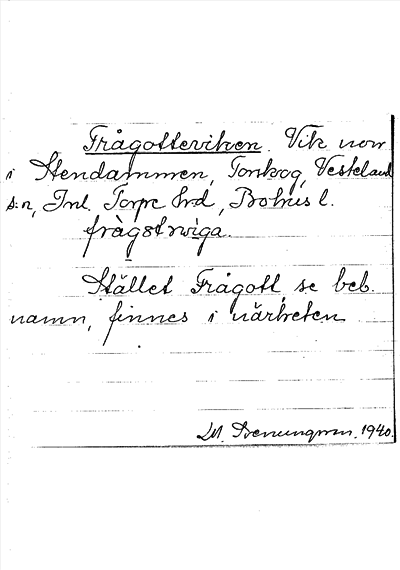 Frågotteviken. Vik norr
i Stendammen, Tonkog, Vesteland
s:n, Inl. Torpe hrd, Bohus l.
Stället Frågott, se beb.
namn, finnes i närheten
1940.